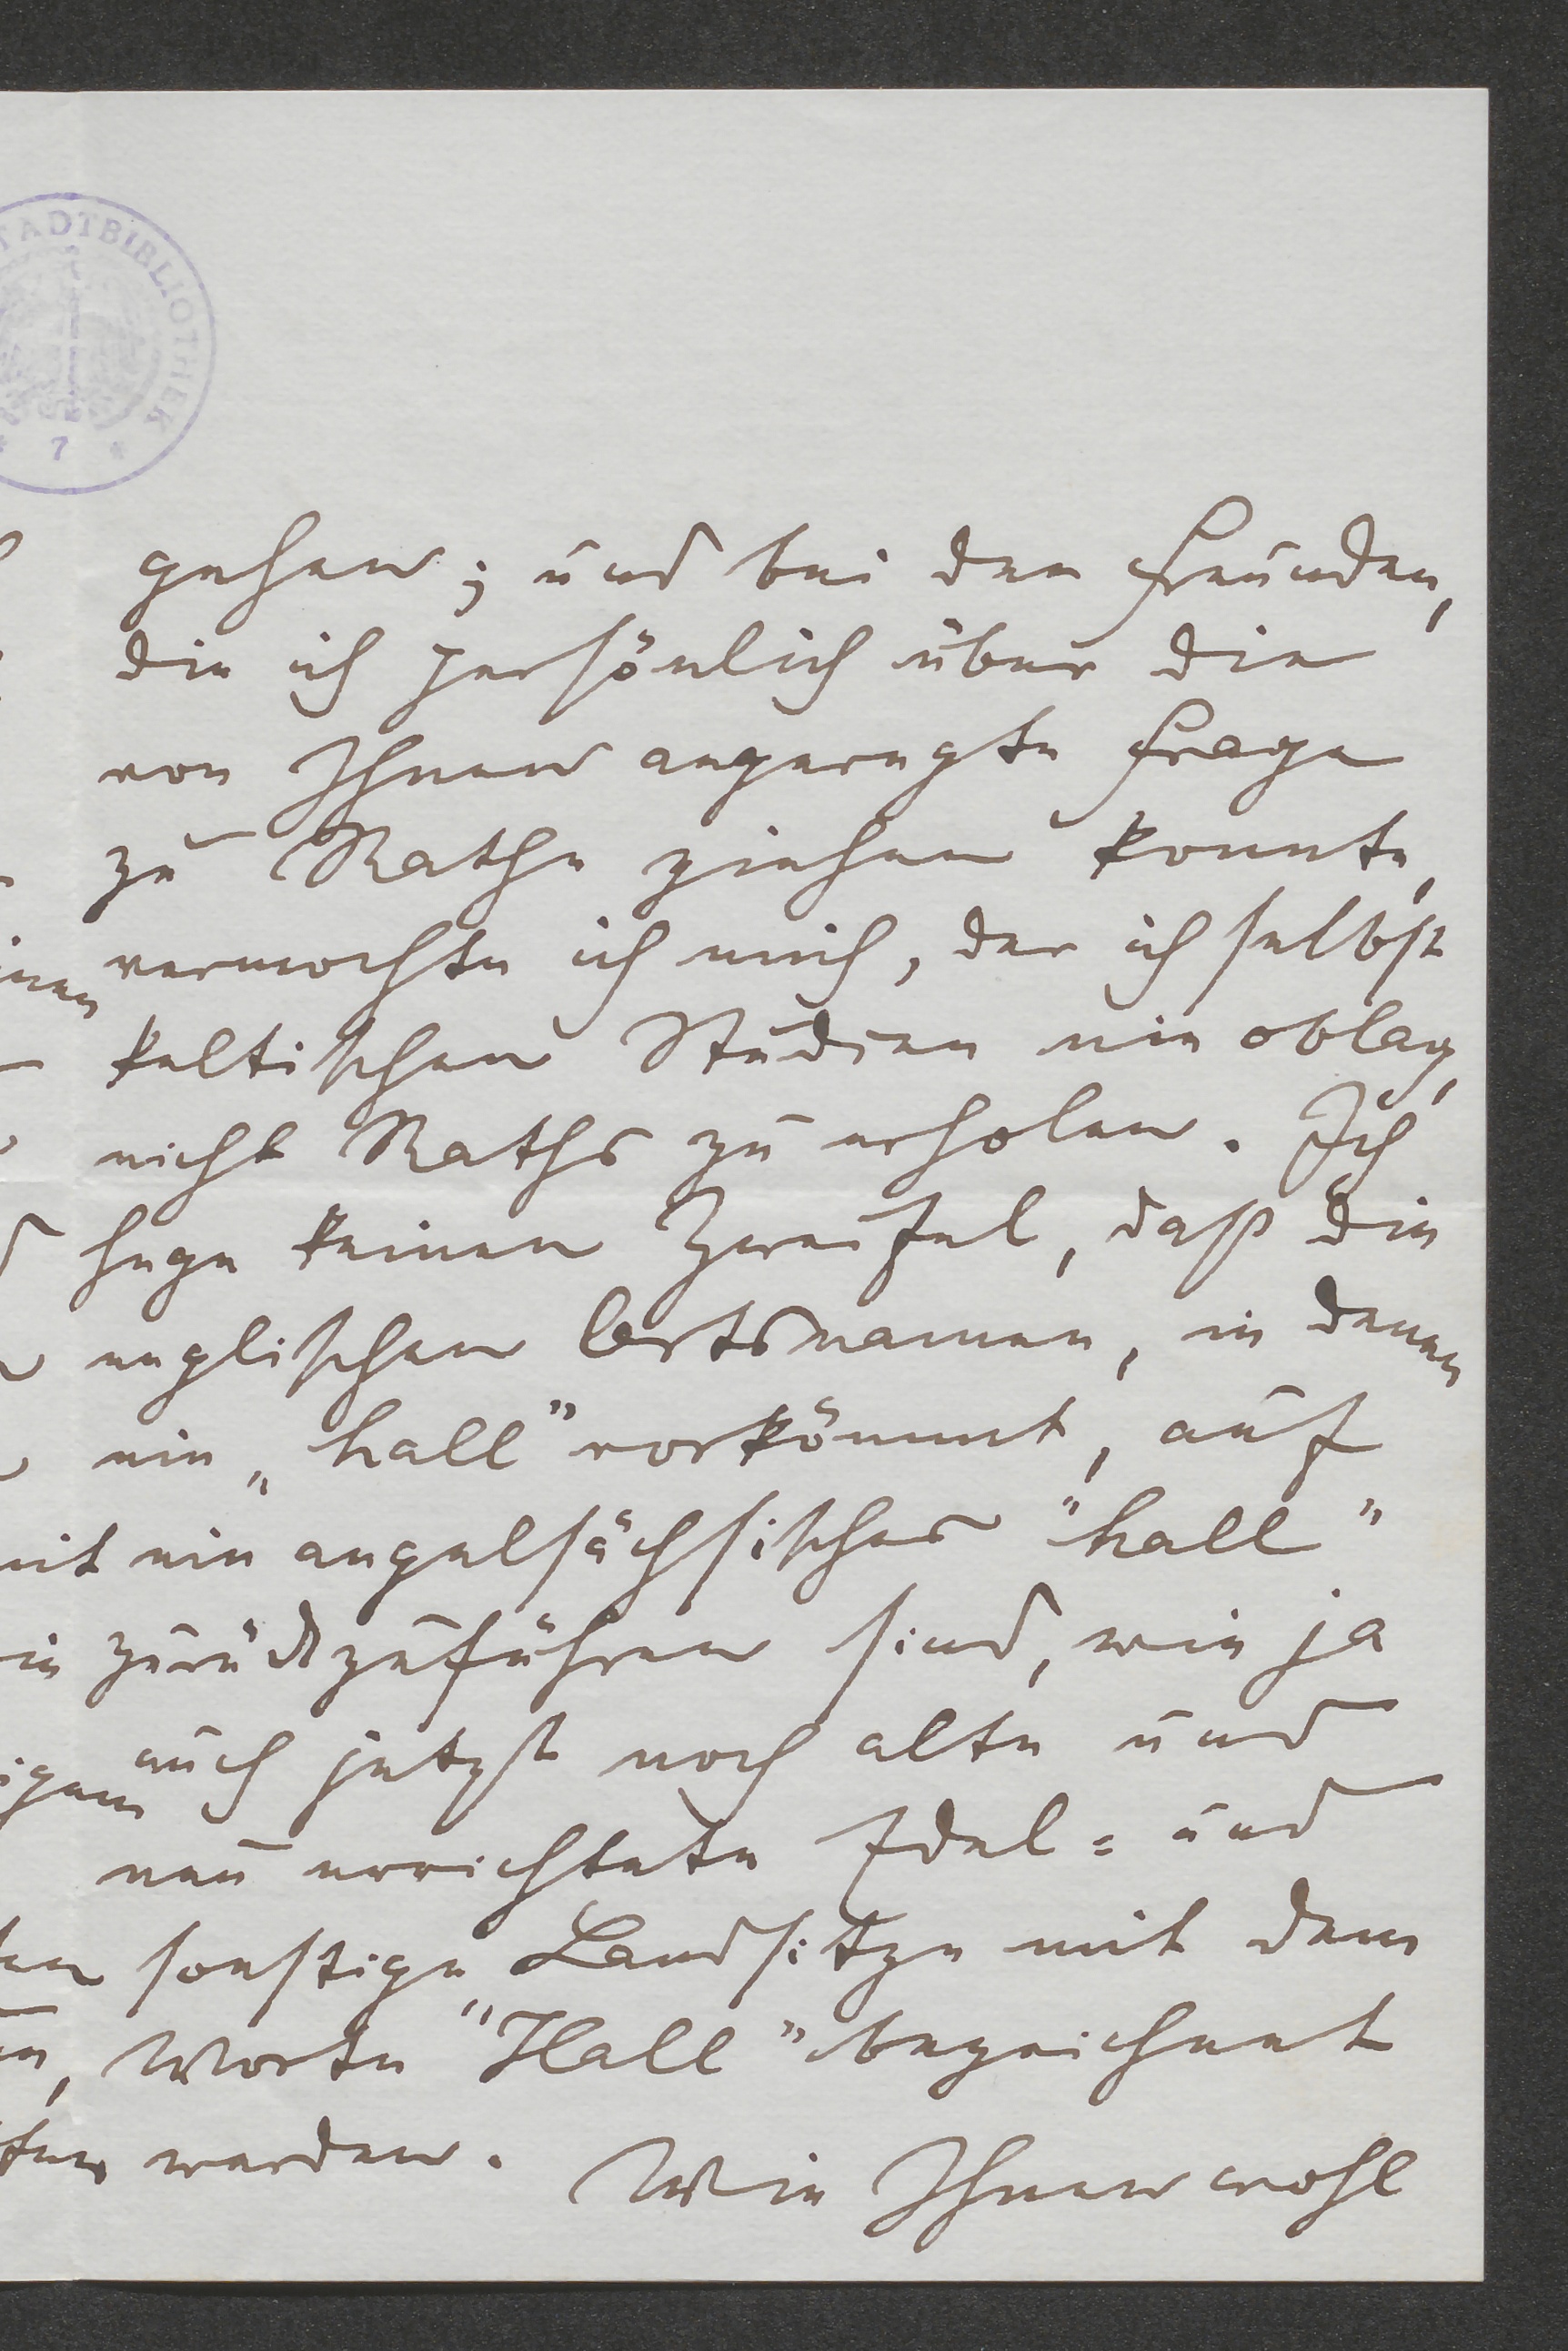 STADTBIBLIOTHEK
* 7 *
gehen; und bei den Freunden,
die ich persönlich über die
von Ihnen angeregte Frage
zu Rathe ziehen konnte,
vermochte ich mich, der ich selbst
keltischen Studien nie oblag,
nicht Raths zu erholen. Ich
hege keinen Zweifel, daß die
englischen Ortsnamen, in denen
ein „hall" vorkömmt, auf
ein angelsächsisches "hall"
zurückzuführen sind, wie ja
auch jetzt noch alte und
neu errichtete Edel- und
sonstige Landsitze mit dem
Worte "Hall" bezeichnet
werden. Wie Ihnen wohl